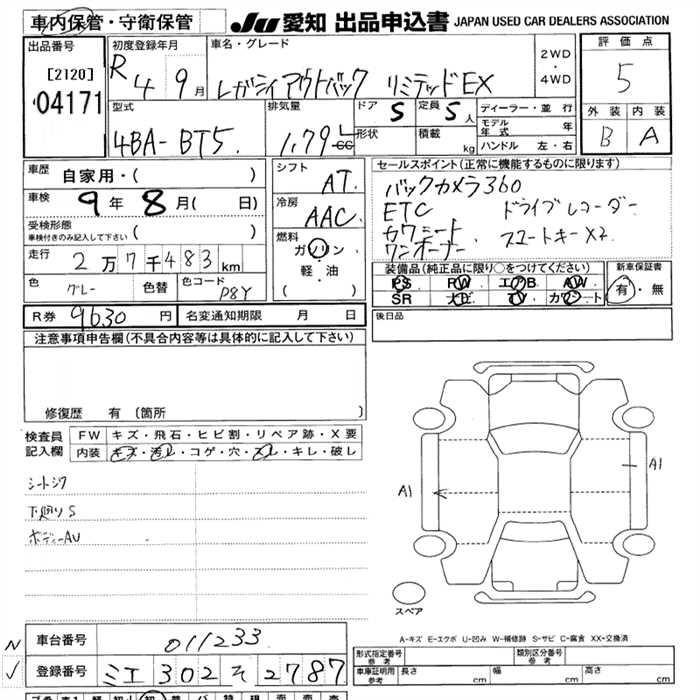 車内保管・守衛保管
JU 愛知 出品申込書 JAPAN USED CAR DEALERS ASSOCIATION
出品番号
[2120]
04171
初度登録年月
R 4 9月
車名・グレード
レガシィアウトバック リミテッドEX
2WD
・
4WD
評価点
5
外装 内装
B A
型式
4BA-BT5
排気量
1.79 L
cc
ドア 5
形状
定員 5人
積載 kg
ディーラー・並行
モデル年式 年
ハンドル 左・右
車歴
自家用・( )
車検
9年8月( 日)
受検形態
車検付きのみ記入して下さい ( )
走行
2万7千483km
色
グレー
色替
色コード
P8Y
シフト
AT
冷房
AAC
燃料
ガソリン
・
軽・油
( )
セールスポイント(正常に機能するものに限ります)
バックカメラ360
ETC ドライブレコーダー
カワシート スマートキーX2
ワンオーナー
装備品(純正品に限り○をつけてください)
PS PW エアB AW
SR ナビ TV カワシート
新車保証書
有・無
R券 9630円
名変通知期限 月 日
後日品
注意事項申告欄(不具合内容等は具体的に記入して下さい)
修復歴 有 〔箇所 〕
検査員
記入欄
FW キズ・飛石・ヒビ割・リペア跡・X要
内装 キズ・汚レ・コゲ・穴・スレ・キレ・破し
シートシワ
下廻りS
ボディーAU
A1
A1
スペア
A-キズ E-エクボ U-凹み W-補修跡 S-サビ C-腐食 XX-交換済
N 車台番号 011233
✓ 登録番号 ミエ 302 そ 2787
形式指定番号
参考
類別区分番号
参考
車庫証明用
参考
長さ cm 幅 cm 高さ cm